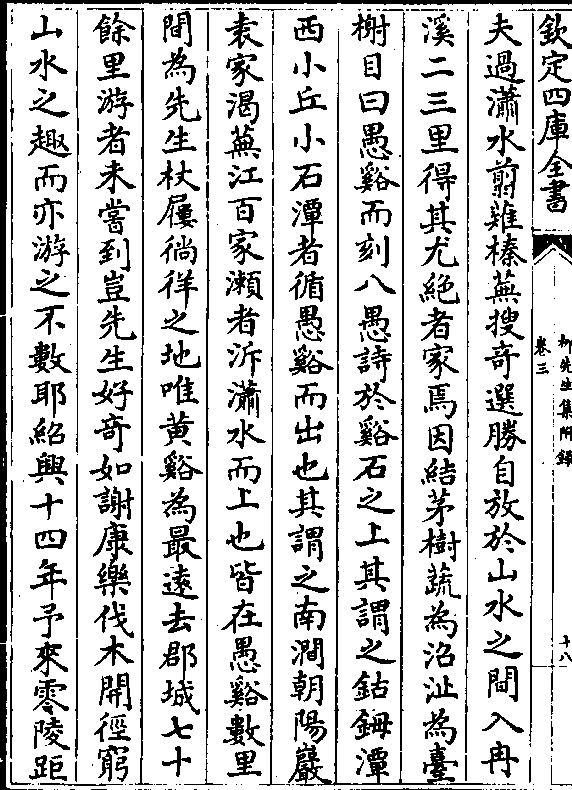 欽定四庫全書
柳先生集附錄
卷三
十八
夫過瀟水翦雜榛蕪搜奇選勝自放於山水之間入冉
溪二三里得其尤絶者家焉因結茅樹蔬為沼沚為臺
榭目曰愚谿而刻八愚詩於谿石之上其謂之鈷鉧潭
西小丘小石潭者循愚谿而出也其謂之南澗朝陽巖
袁家渴蕪江百家瀨者泝瀟水而上也皆在愚谿數里
間為先生杖屨徜徉之地唯黄谿為最遠去郡城七十
餘里游者未嘗到豈先生好奇如謝康樂伐木開徑窮
山水之趣而亦游之不數耶紹興十四年予來零陵距